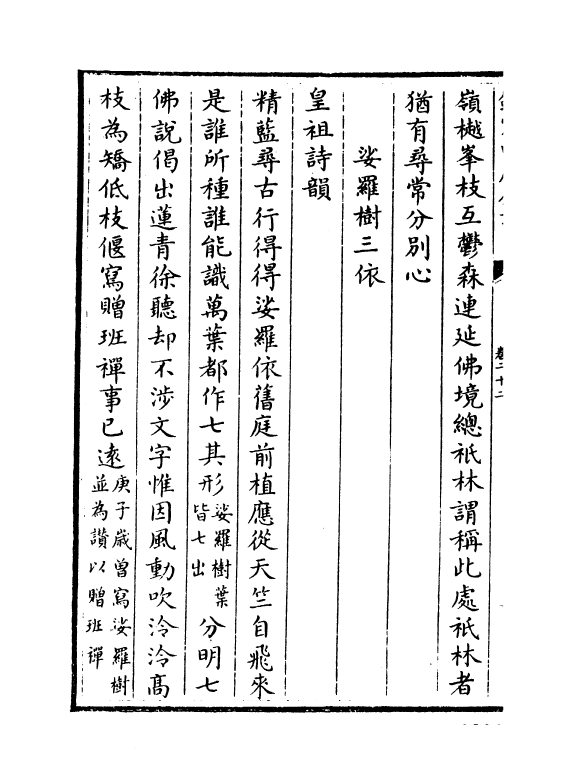 卷二十二
嶺樾峯枝互鬱森連延佛境總祇林謂稱此處祇林者
猶有尋常分別心
娑羅樹三依
皇祖詩韻
精藍尋古行得得娑羅依舊庭前植應從天竺自飛來
是誰所種誰能識萬葉都作七其形娑羅樹葉皆七出分明七
佛說偈出蓮青徐聽却不涉文字惟因風動吹泠泠高
枝為矯低枝偃寫贈班禪事已遠庚子嵗曾寫娑羅樹並為讚以贈班禪